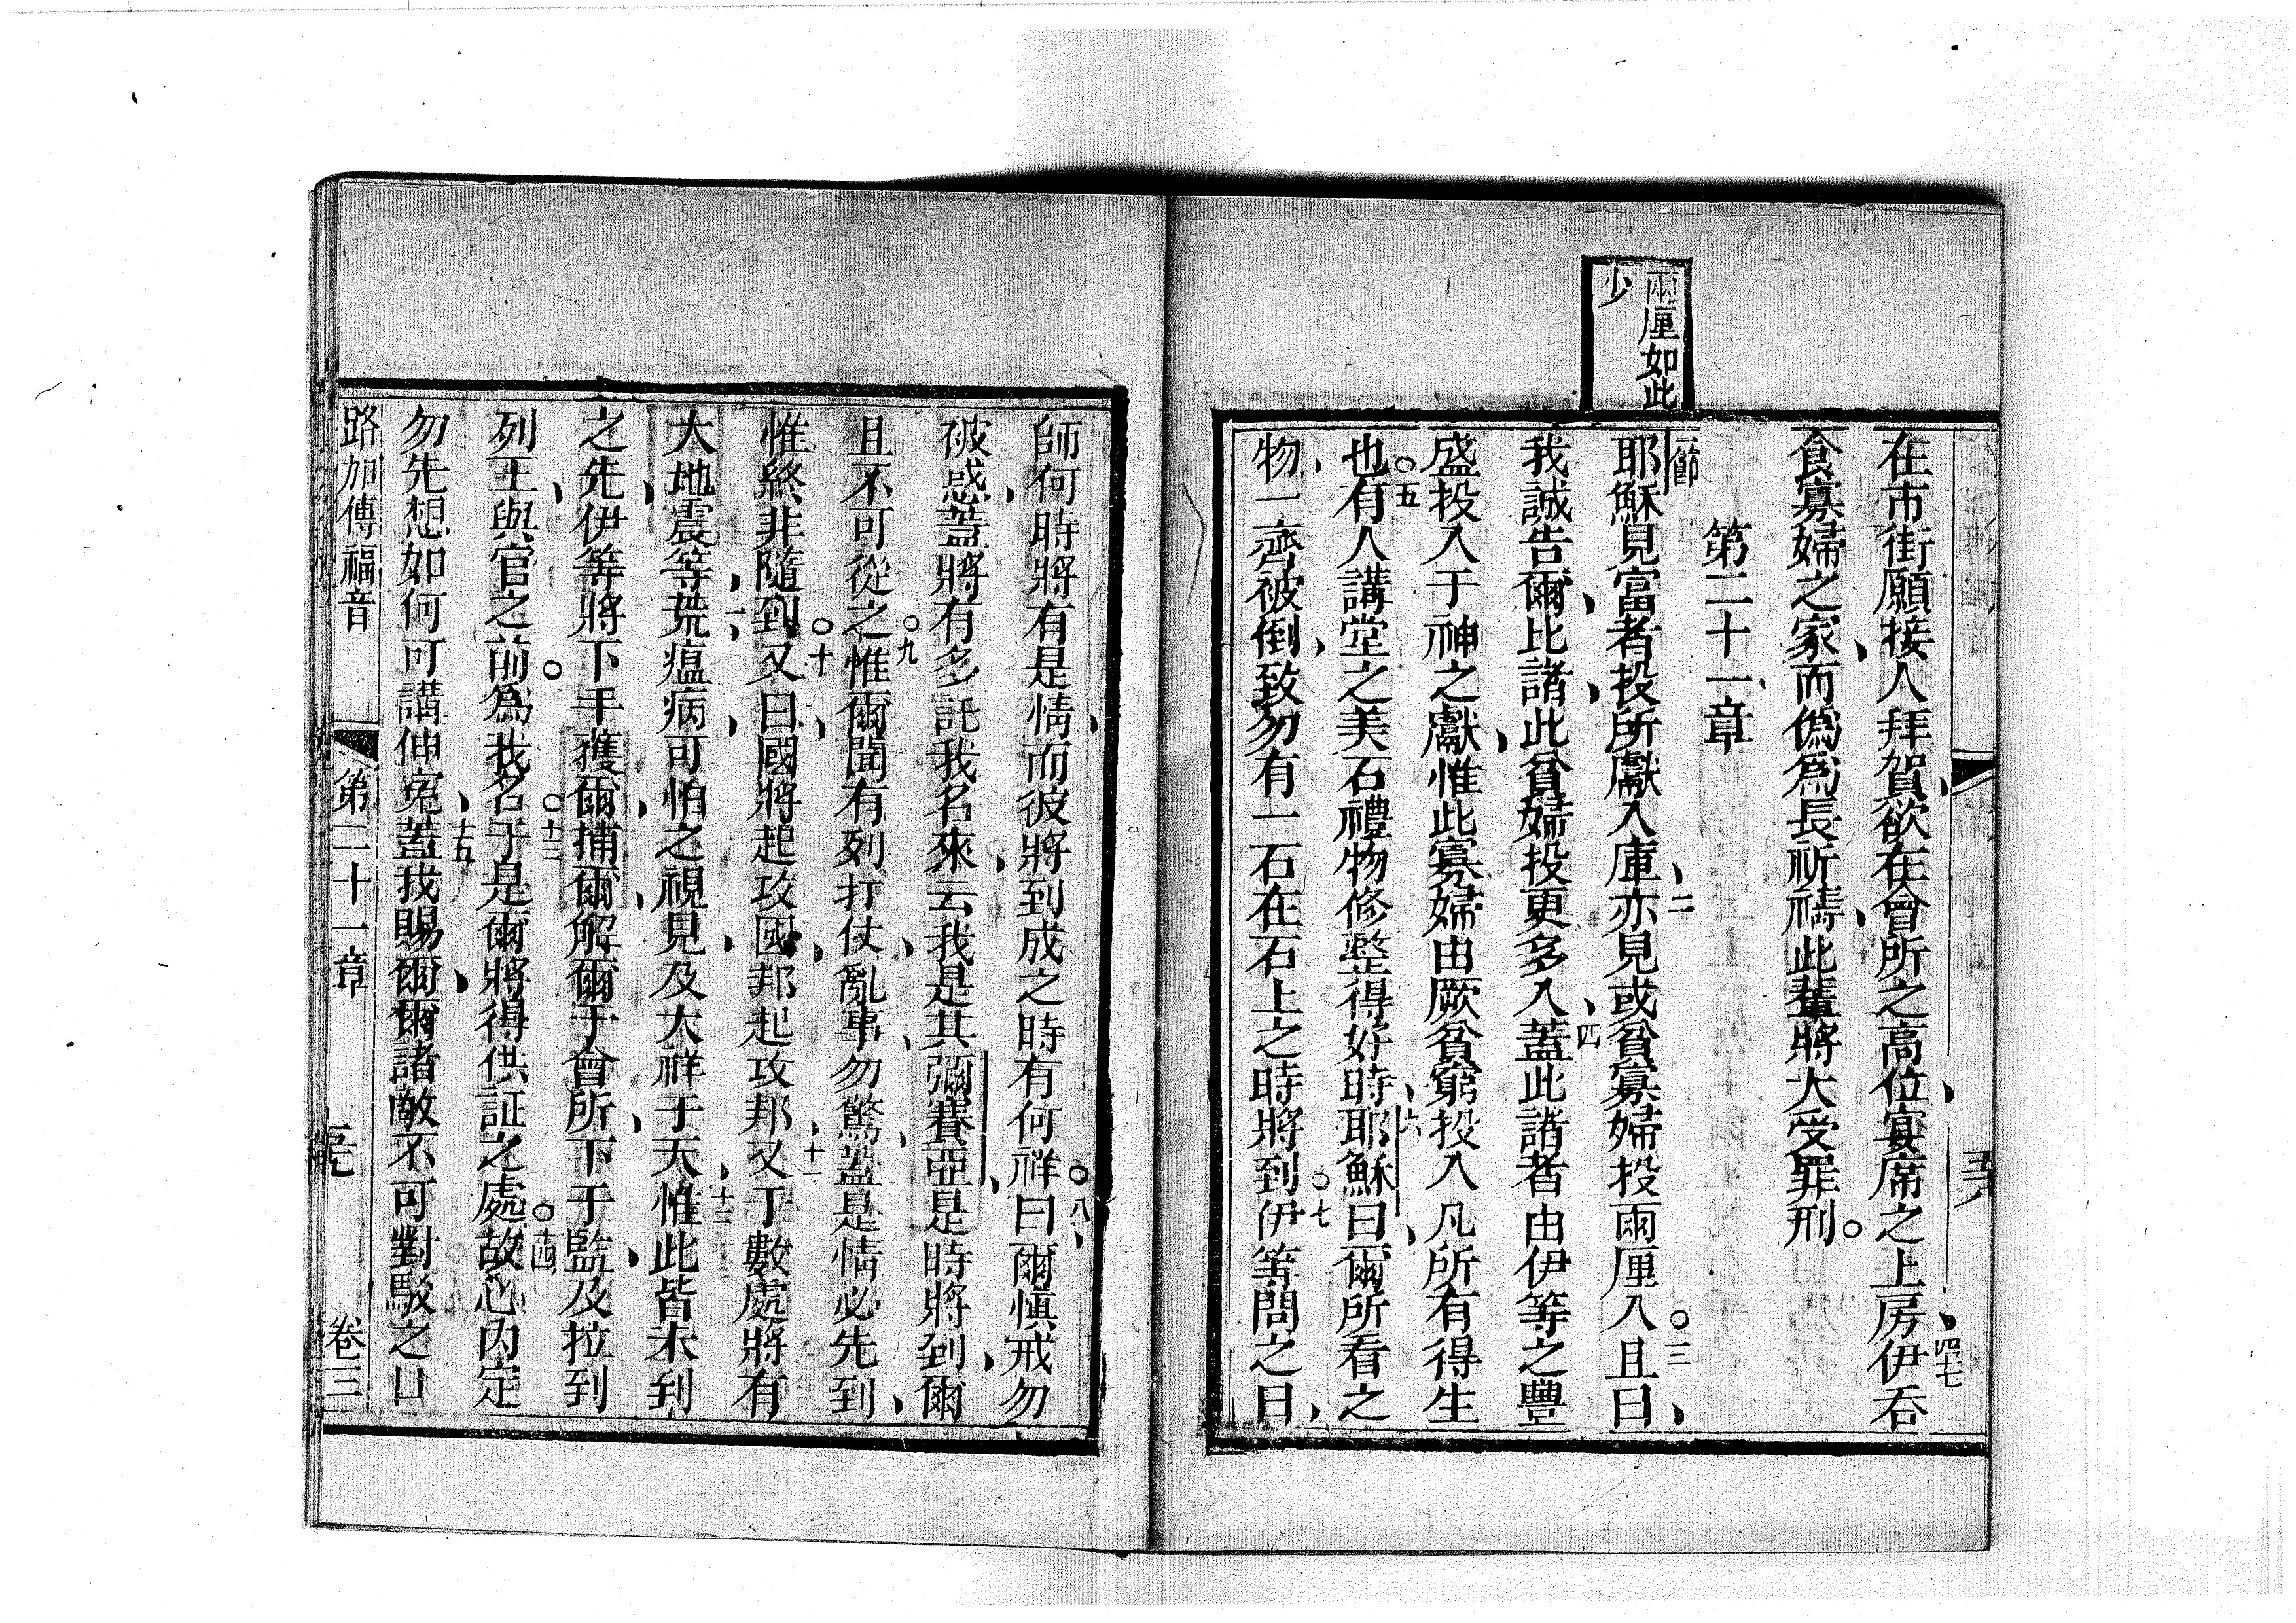 兩厘如此
少
在市街願接人拜賀、欲在會所之高位、宴席之上房、四七伊吞
食寡婦之家、而僞爲長祈禱、此輩將大受罪刑。
第二十一章
一節耶穌見富者投所獻入庫、二亦見或貧寡婦投兩厘入。三且曰、
我誠告爾、比諸、此貧婦投更多入、四蓋此諸者由伊等之豐
盛投入于神之獻、惟此寡婦由厥貧窮投入凡所有得生
也。五有人講堂之美石禮物修整得好時、六耶穌曰、爾所看之
物、一齊被倒、致勿有一石在石上之時將到。七伊等問之曰、
師何時將有是情、而彼將到成之時有何祥。八曰、爾愼戒勿
被惑、蓋將有多託我名來、云我是其彌賽亞、是時將到、爾
且不可從之。九惟爾聞有列打仗、亂事、勿驚、蓋是情必先到、
惟終非隨到。十又曰、國將起攻國、邦起攻邦、十一又于數處將有
大地震等、荒、瘟病、可怕之視見、及大祥于天、十二惟此皆未到
之先、伊等將下手獲爾、捕爾、解爾于會所、下于監、及拉到
列王、與官之前。爲我名。十三于是爾將得供証之處。十四故心內定
勿先想如何可講伸寃、十五蓋我賜爾、爾諸敵不可對駁之口
路加傳福音 第二十一章 卷三